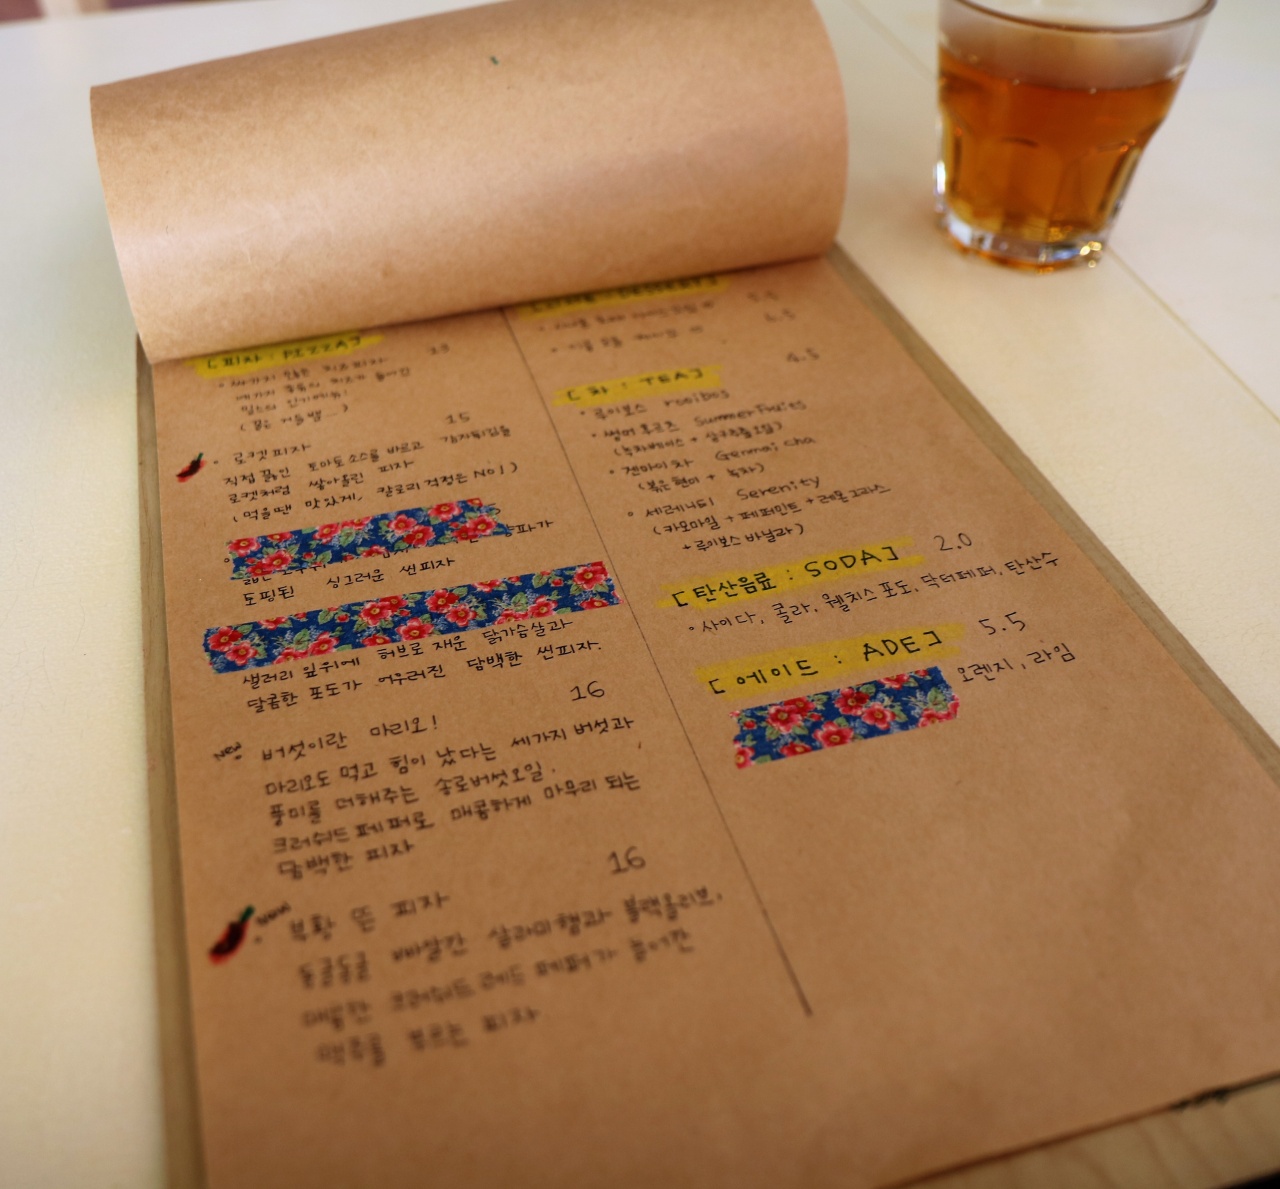 [피자 : PIZZA]
13
치즈피자
네가지 종류의 치즈가 들어간
15
로켓피자
직접 끓인 토마토소스를 바르고 감자튀김을
로켓처럼 쌓아올린 피자
(먹을땐 맛있게, 칼로리 걱정은 No!)
양파가
토핑된 싱그러운 씬피자
허브로 재운 닭가슴살과
샐러리 잎위에
달콤한 포도가 어우러진 담백한 씬피자.
16
New 버섯이란 마리오!
마리오도 먹고 힘이 났다는 세가지 버섯과
풍미를 더해주는 송로버섯오일.
크러쉬드페퍼로 매콤하게 마무리 되는
담백한 피자
16
New 피자
동글동글 빠알간 살라미햄과 블랙올리브,
매콤한 크러쉬드레드페퍼가 들어간
맥주를 부르는 피자
DESSERT]
6.5
4.5
[차 : TEA]
루이보스 rooibos
썸머후르츠 Summer Fruits
겐마이차 Genmai cha
(볶은현미 + 녹차)
세레니티 Serenity
(카모마일 + 페퍼민트 + 레몬그라스
+ 루이보스 바닐라)
[탄산음료 : SODA] 2.0
사이다, 콜라, 웰치스포도, 닥터페퍼, 탄산수
[에이드 : ADE] 5.5
오렌지, 라임